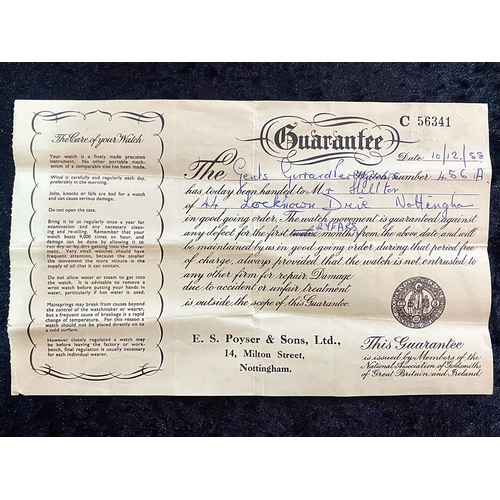 The Care of your Watch
Your watch is a finely made precision
instrument. No other portable mech-
anism of a comparable size has been made.
Wind it carefully and regularly each day,
preferably in the morning.
Jolts, knocks or falls are bad for a watch
and can cause serious damage.
Do not open the case.
Bring it to us regularly once a year for
examination and any necessary clean-
ing and re-oiling. Remember that your
watch beats 9,000 times an hour, and
damage can be done by allowing it to
run dry or dirt getting into the move-
ment. Very small watches should be seen to
frequent attention, because the smaller
the movement the more minute is the
supply of oil that it can contain.
Do not allow water or steam to get into
the watch. It is advisable to remove a
wrist watch before putting your hands in
water, particularly if hot water is used.
Mainsprings may break from causes beyond
the control of the watchmaker or wearer,
but a frequent cause of breakage is a rapid
change of temperature. For this reason a
watch should not be placed directly on to a
cold surface.
However closely regulated a watch may
be before leaving the factory or work-
bench, final regulation is usually necessary
for each individual wearer.
C 56341
Guarantee
Date 10/12/58
The Gents number 456 A
has today been handed to Mr
of 44 Drive Nottingham
in good going order. The watch movement is guaranteed against
any defect for the first twelve 2 YEARS months from the above date and will
be maintained by us in good going order during that period free
of charge, always provided that the watch is not entrusted to
any other firm for repair. Damage
due to accident or unfair treatment
is outside the scope of this Guarantee.
E. S. Poyser & Sons, Ltd.,
14, Milton Street,
Nottingham.
This Guarantee
is issued by Members of the
National Association of Goldsmiths
of Great Britain and Ireland.